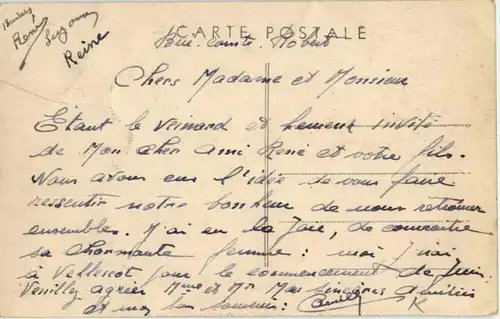 René
Suzanne
Reine
CARTE POSTALE
Brie-Comte-Robert
Chers Madame et Monsieur
Étant le veinard et heureux invité
de Mon cher ami René et votre fils.
Nous avons eu l'idée de vous faire
ressentir notre bonheur de nous retrouver
ensembles. J'ai eu la Joie, de connaitre
sa charmante femme : moi J'irai
à Vellescot pour le commencement de Juin.
Veuillez agréer Mme et Mr Mes sincères amitiés
et mon bon souvenir :